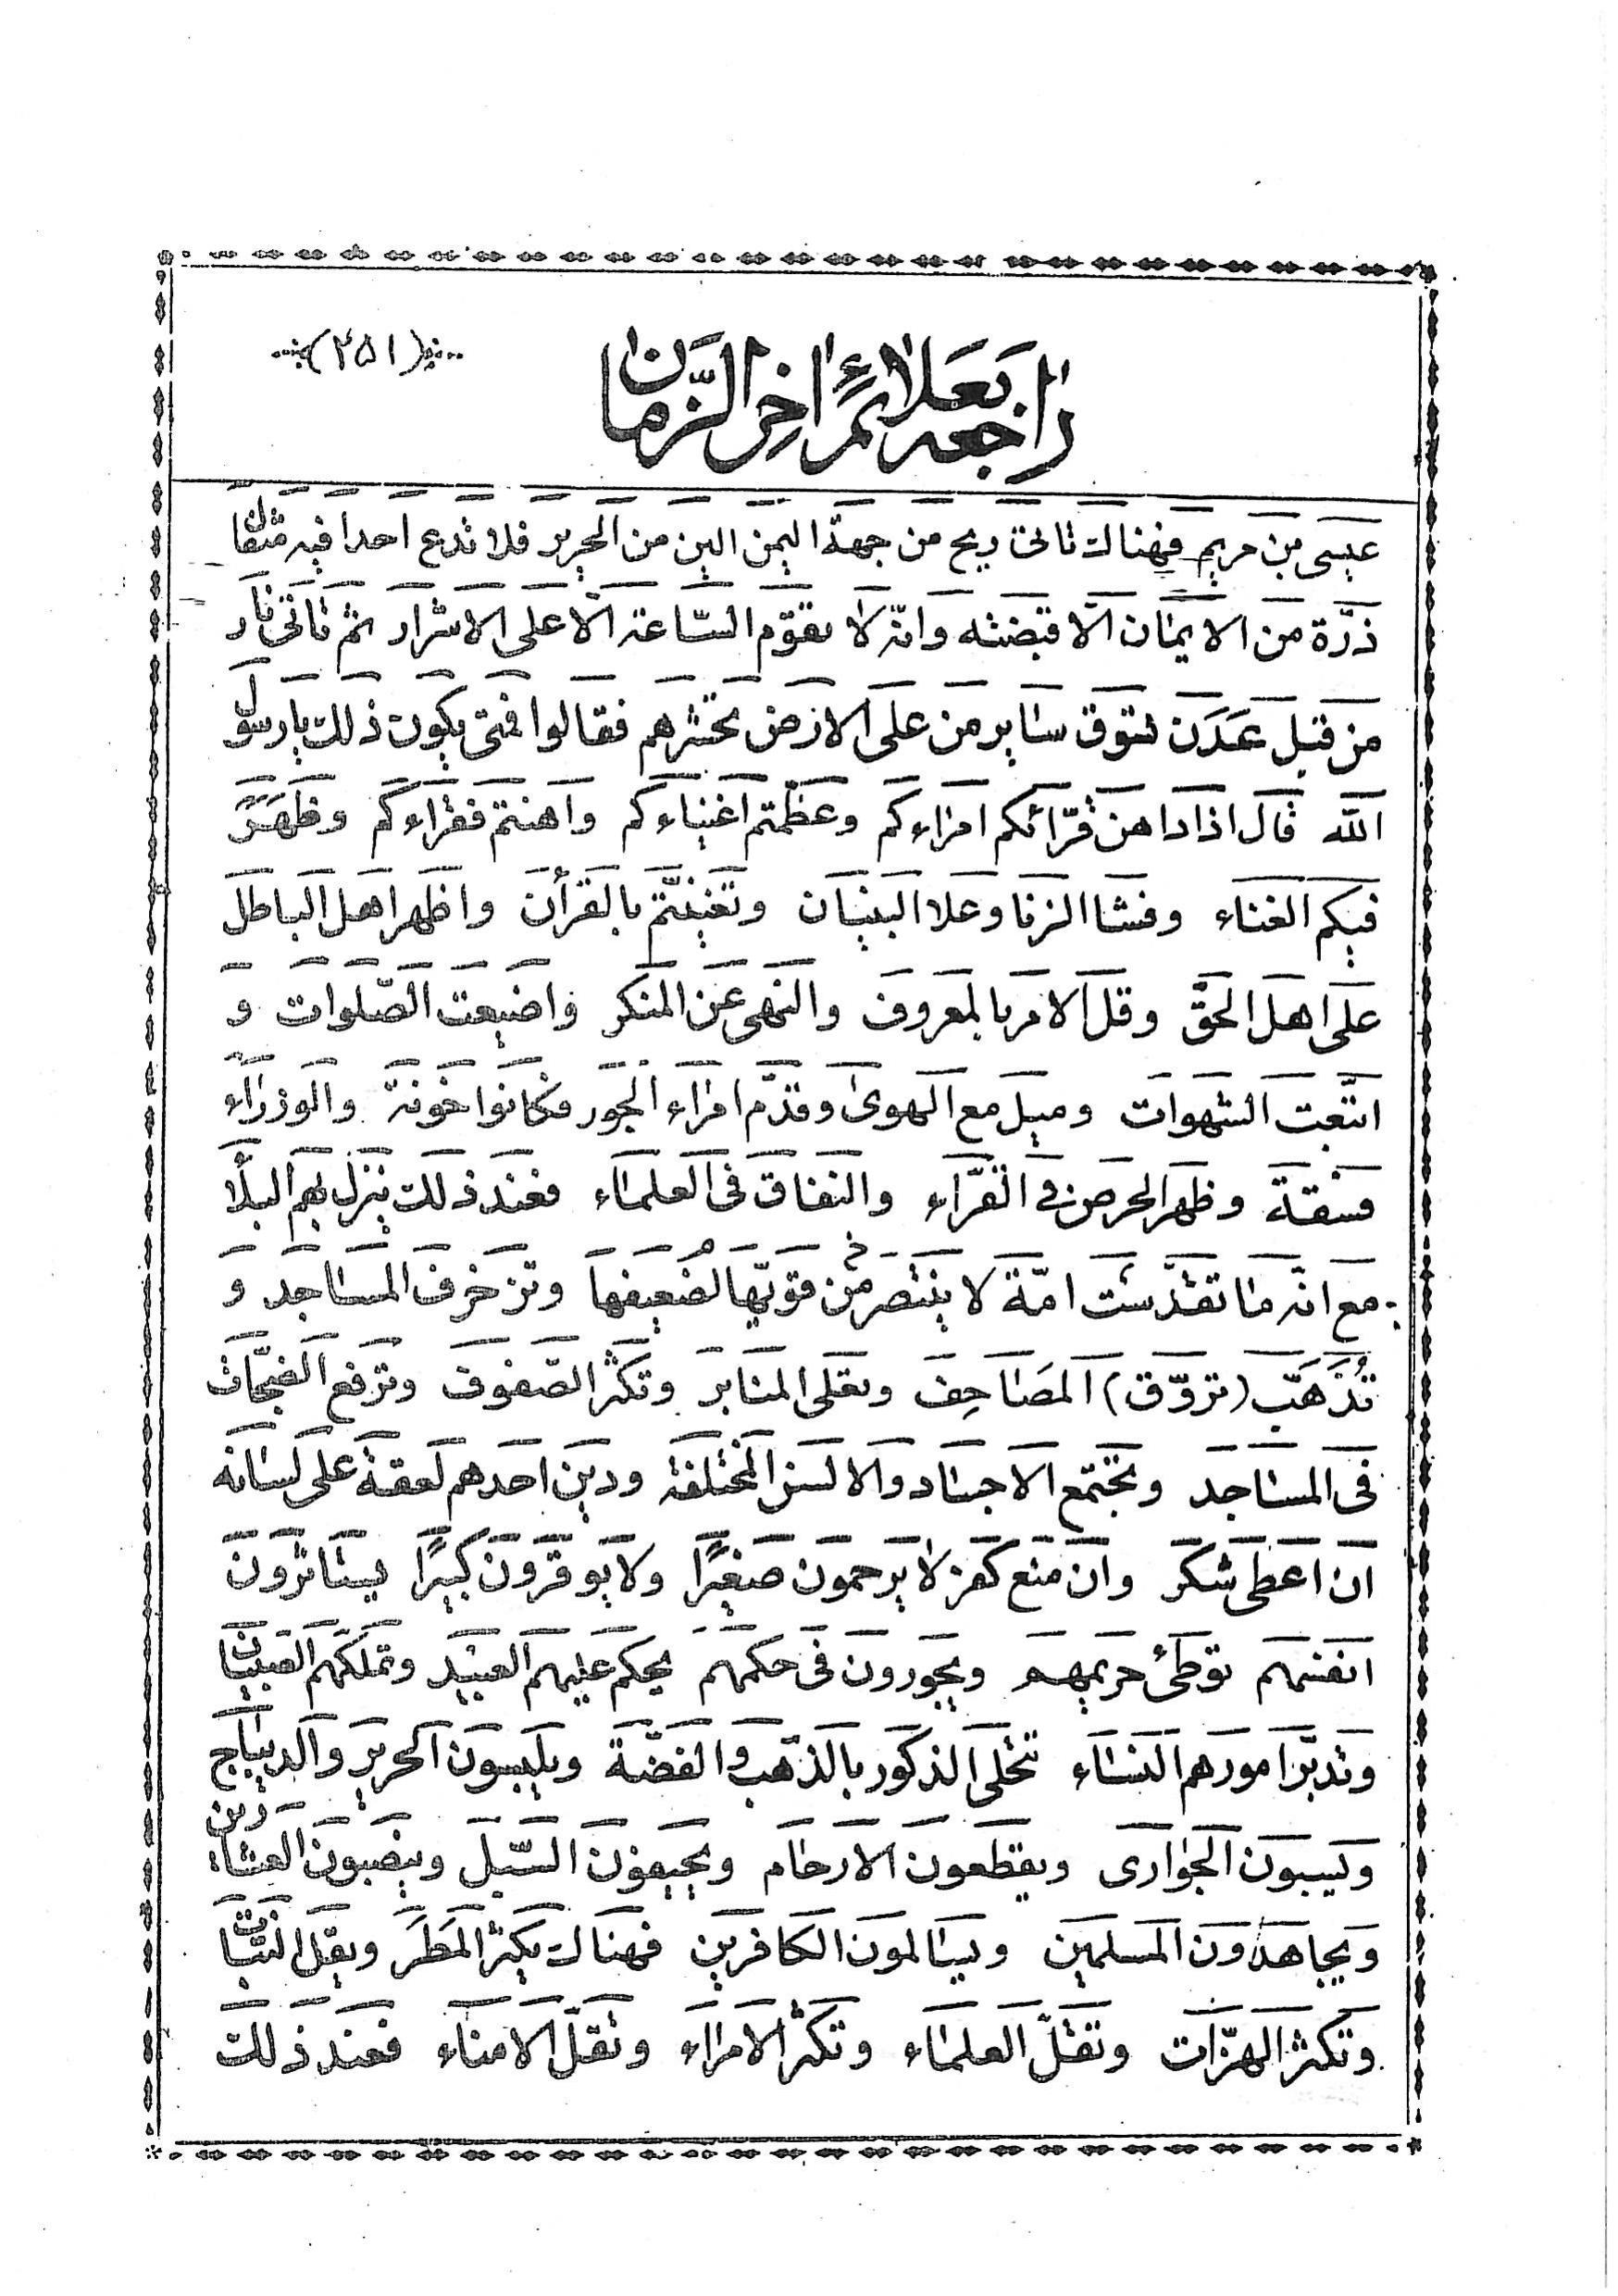 (۲۵۱)
راجعه بعلائم اخر الزمان
عیسی بن مریم فهنالك تاتی ریح من جهة الیمن الین من الحریر فلا تدع احدا فیه مثقال
ذرّة من الایمان الّا قبضته وانّه لا تقوم السّاعة الّا علی الاشرار ثم تاتی نار
من قبل عدن تسوق سایر من علی الارض تحشرهم فقالوا فمتی یکون ذلك یا رسول
الله قال اذا داهن قرّائکم امراءکم وعظّمتم اغنیاءکم واهنتم فقراءکم وظهر
فیکم الغناء وفشا الزنا وعلا البنیان وتغنیتّم بالقرأن واظهر اهل الباطل
علی اهل الحقّ وقل الامر بالمعروف والنهی عن المنکر واضیعت الصّلوات و
اتّبعت الشهوات ومیل مع الهوی وقدّم امراء الجور فکانوا خونة والوزراء
فسقة وظهر الحرص فی القرّاء والنفاق فی العلماء فعند ذلك ینزل بهم البلأ
مع انّه ما تقدّست امّة لا ینتصر من قویّها لضعیفها وتزخرف المساجد و
تُذَهَّب (تزوّق) المصاحِف وتعلی المنابر وتکثر الصّفوف وترفع الضجّات
فی المساجد وتجتمع الاجساد والالسن المختلفة ودین احدهم لعقة علی لسانه
ان اعطی شکر وان منع کفر لا یرحمون صغیرًا ولا یوقرون کبیرًا یستاثرون
انفسهم توطئ حریمهم ویجورون فی حکمهم یحکم علیهم العبید وتملکهم الصبیان
وتدبّر امورهم النساء تتحلی الذکور بالذّهب والفضّة ویلبسون الحریر والدیباج
ویسبون الجواری ویقطعون الارحام ویحیفون السّبل وینصبون العشارین
ویجاهدون المسلمین ویسالمون الکافرین فهنالك یکثر المَطَر ویقل النبات
وتکثر الهزّات وتقلّ العلماء وتکثر الامراء وتقلّ الامناء فعند ذلك